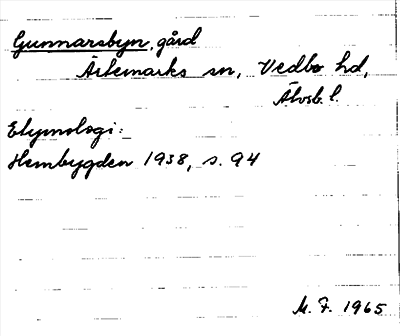 Gunnarsbyn, gård
Ärtemarks sn, Vedbo hd,
Älvsb. l.
Etymologi:
Hembygden 1938, s. 94
M. F. 1965